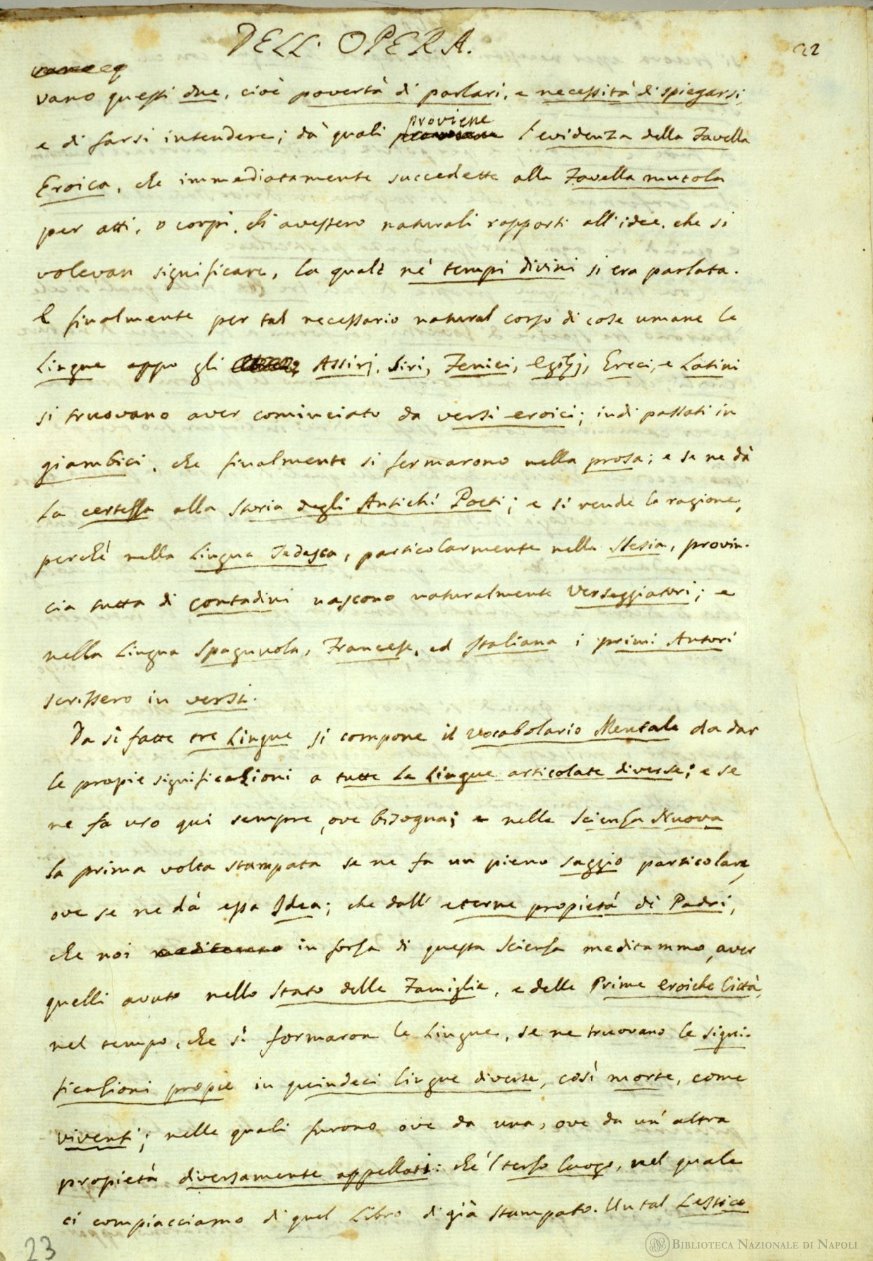 DELL' OPERA.
22
vano questi due, cioè povertà di parlari, e necessità di spiegarsi,
e di farsi intendere; da' quali proviene l'evidenza della Favella
Eroica, che immediatamente succedette alla Favella mutola
per atti, o corpi, ch'avessero naturali rapporti all'idee, che si
volevan significare, la quale ne' tempi divini si era parlata.
E finalmente per tal necessario natural corso di cose umane le
Lingue appo gli Assirj, Siri, Fenici, Egizj, Greci, e Latini
si truovano aver cominciato da versi eroici; indi passati in
giambici, che finalmente si fermarono nella prosa; e se ne dà
la certezza alla Storia degli Antichi Poeti; e si rende la ragione,
perchè nella Lingua Tedesca, particolarmente nella Slesia, provin-
cia tutta di contadini nascono naturalmente Verseggiatori; e
nella Lingua Spagnuola, Francese, ed Italiana i primi Autori
scrissero in versi.
Da sì fatte tre Lingue si compone il Vocabolario Mentale da dar
le propie significazioni a tutte le Lingue articolate diverse; e se
ne fa uso qui sempre, ove bisogna; e nella Scienza Nuova
la prima volta stampata se ne fa un pieno saggio particolare,
ove se ne dà essa Idea; che dall' eterne propietà di Padri,
che noi in forza di questa Scienza meditammo, aver
quelli avuto nello Stato delle Famiglie, e delle Prime eroiche Città,
nel tempo, che si formaron le Lingue, se ne truovano le signi-
ficazioni propie in quindeci lingue diverse, così morte, come
viventi; nelle quali furono ove da una, ove da un' altra
propietà diversamente appellati: ch'è 'l terzo luogo, nel quale
ci compiacciamo di quel Libro di già stampato. Un tal Lessico
23
BIBLIOTECA NAZIONALE DI NAPOLI